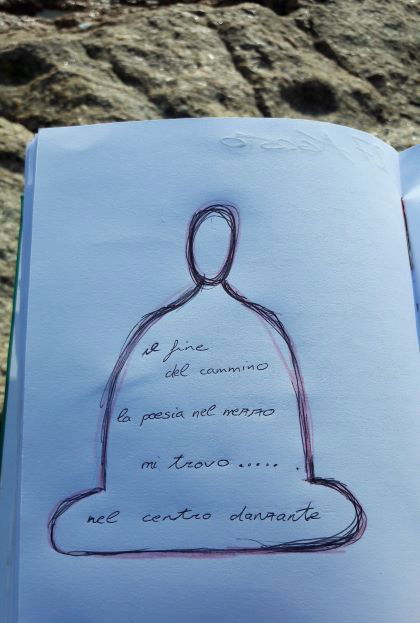 il fine
del cammino
la poesia nel mezzo
mi trovo ..... .
nel centro danzante